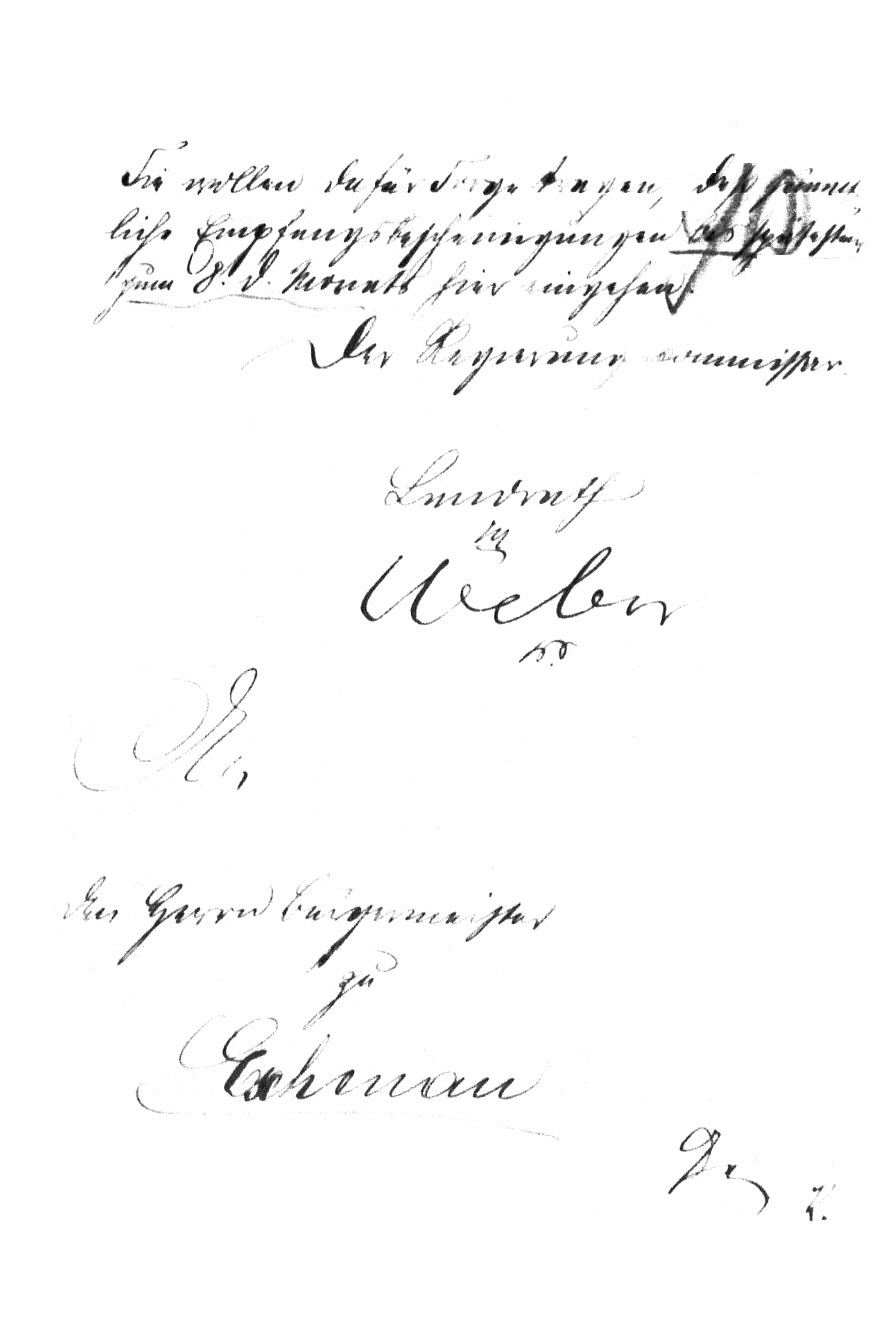 Sie wollen dafür Sorge tragen, daß sämmt
liche Empfangsbescheinigungen bis spätestens
zum 8. d. Monats hier eingehen.
Der Regierungscommissar
Landrath
Weber
An
den Herrn Bürgermeister
zu